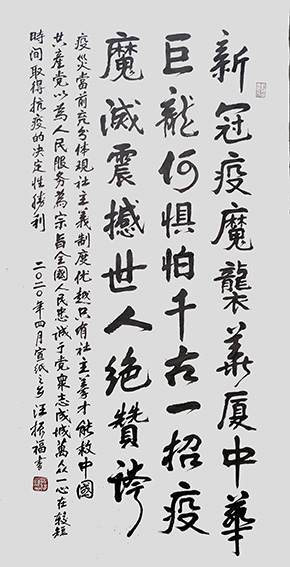 新冠疫魔襲華厦中華
巨龍何惧怕千古一招疫
魔滅震撼世人绝贊誇
疫災當前充分体現社主義制度优越只有社主義才能救中國
共產党以為人民服务為宗旨全國人民忠诚于党衆志成城萬众一心在较短
時间取得抗疫的决定性勝利
二〇二〇年四月宣纸之乡汪振福書